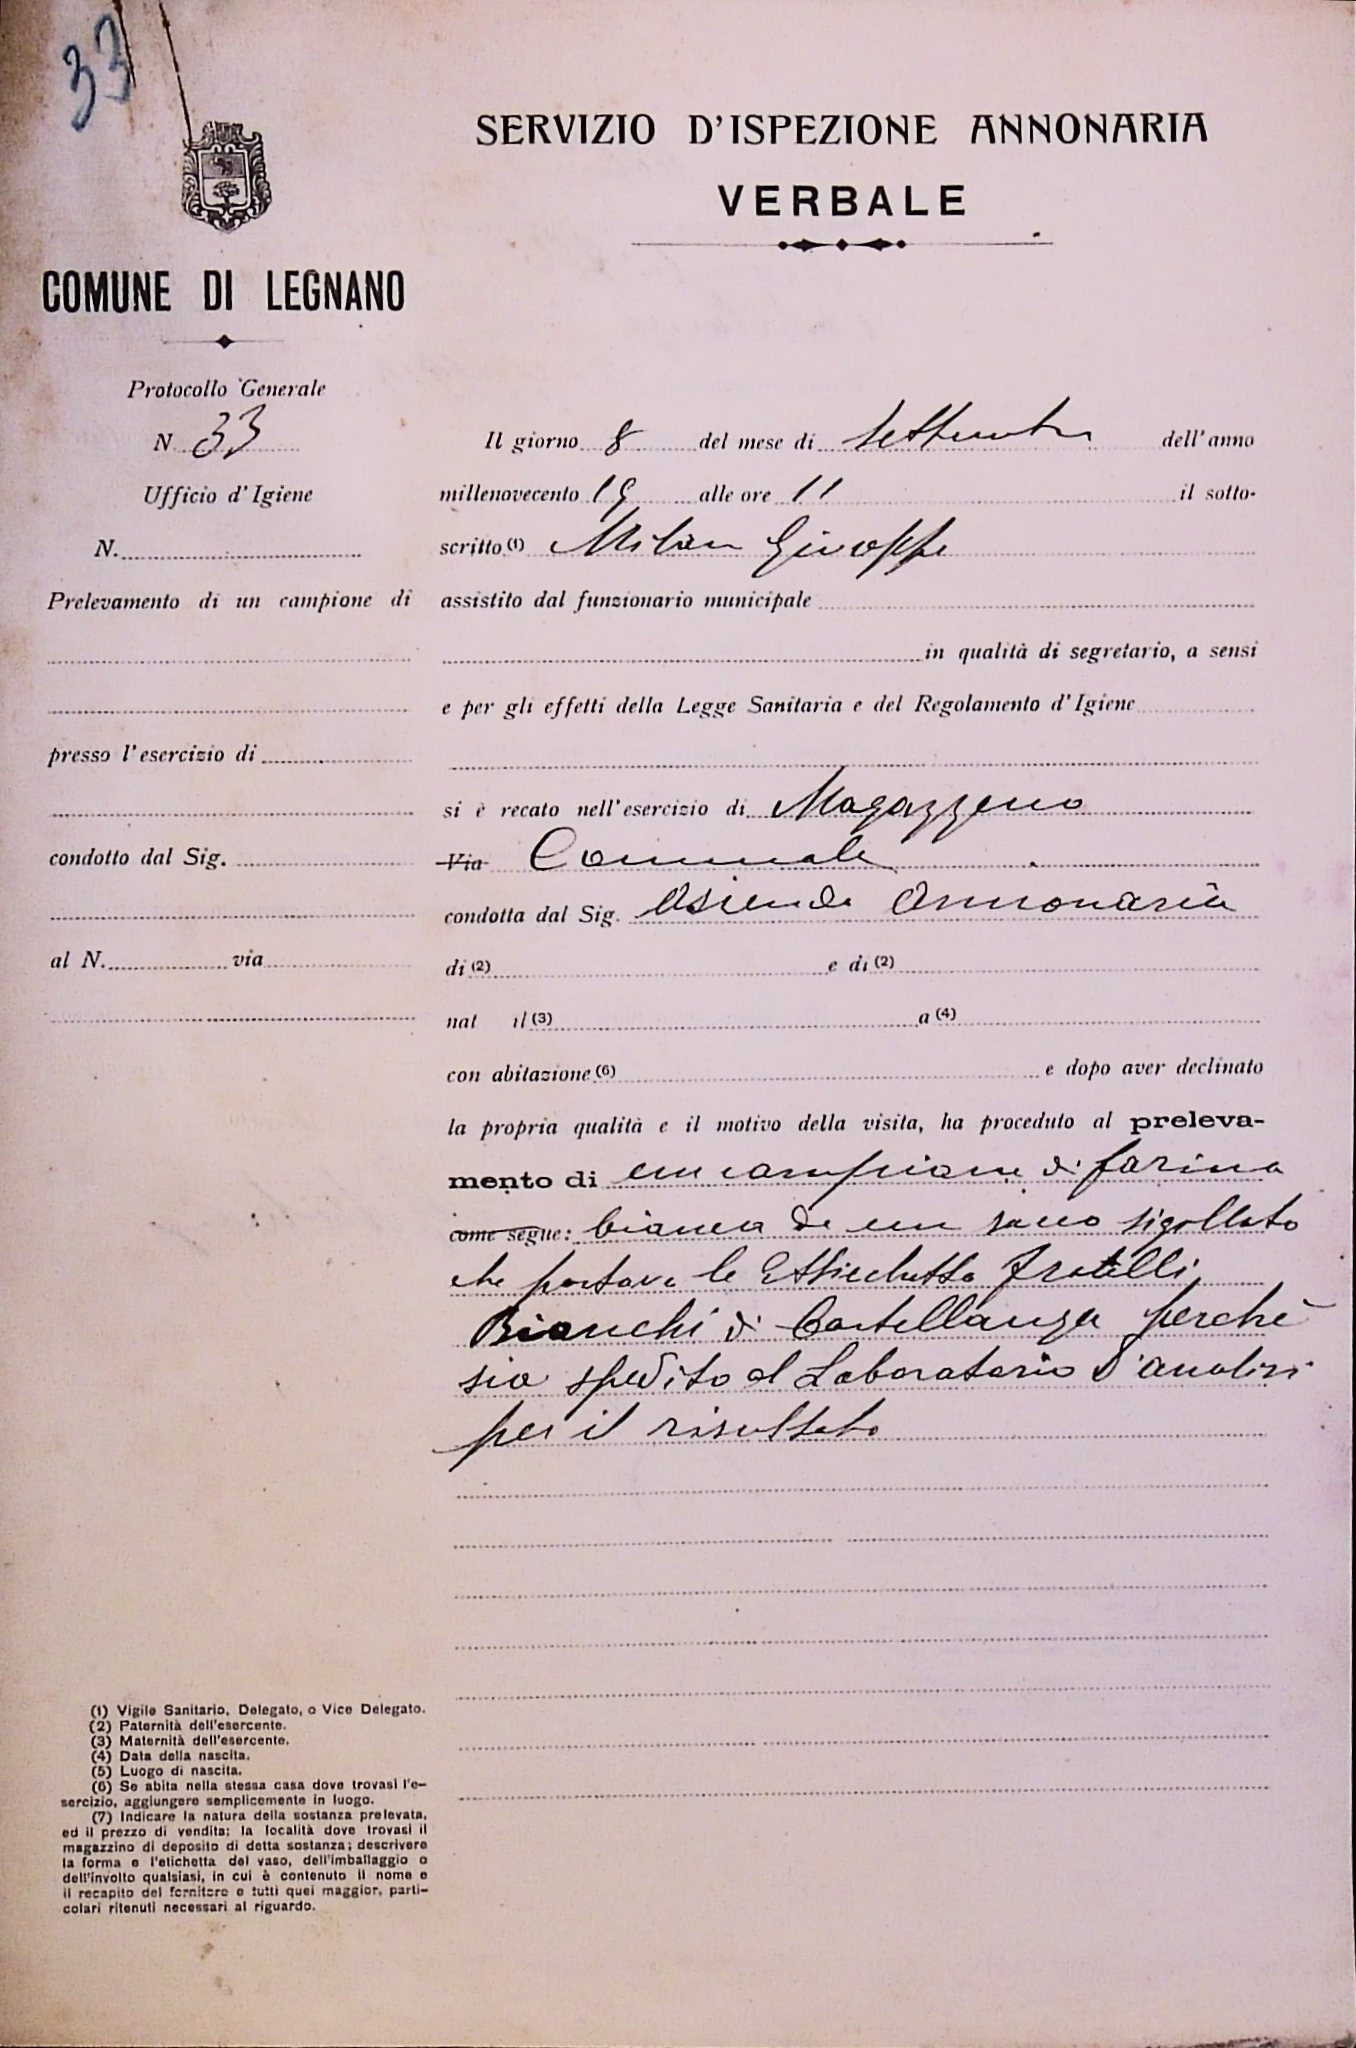 33
SERVIZIO D'ISPEZIONE ANNONARIA
VERBALE
COMUNE DI LEGNANO
Protocollo Generale
N. 33
Ufficio d'Igiene
N.
Prelevamento di un campione di
presso l'esercizio di
condotto dal Sig.
al N. via
Il giorno 8 del mese di Settembre dell'anno
millenovecento 19 alle ore 11 il sotto-
scritto (1) Milan Giuseppe
assistito dal funzionario municipale
in qualità di segretario, a sensi
e per gli effetti della Legge Sanitaria e del Regolamento d'Igiene
si è recato nell'esercizio di Magazzeno
Via Comunale
condotta dal Sig. Asienda Annonaria
di (2) e di (2)
nat il (3) a (4)
con abitazione (6) e dopo aver declinato
la propria qualità e il motivo della visita, ha proceduto al preleva-
mento di un campione di farina
come segue: bianca da un sacco sigellato
che portava la Etticchetta Fratelli
Bianchi di Castellanza perchè
sia spedito al Laboratorio d'analisi
per il risultato
(1) Vigile Sanitario, Delegato, o Vice Delegato.
(2) Paternità dell'esercente.
(3) Maternità dell'esercente.
(4) Data della nascita.
(5) Luogo di nascita.
(6) Se abita nella stessa casa dove trovasi l'e-
sercizio, aggiungere semplicemente in luogo.
(7) Indicare la natura della sostanza prelevata,
ed il prezzo di vendita; la località dove trovasi il
magazzino di deposito di detta sostanza; descrivere
la forma e l'etichetta del vaso, dell'imballaggio o
dell'involto qualsiasi, in cui è contenuto il nome e
il recapito del fornitore e tutti quei maggior, parti-
colari ritenuti necessari al riguardo.